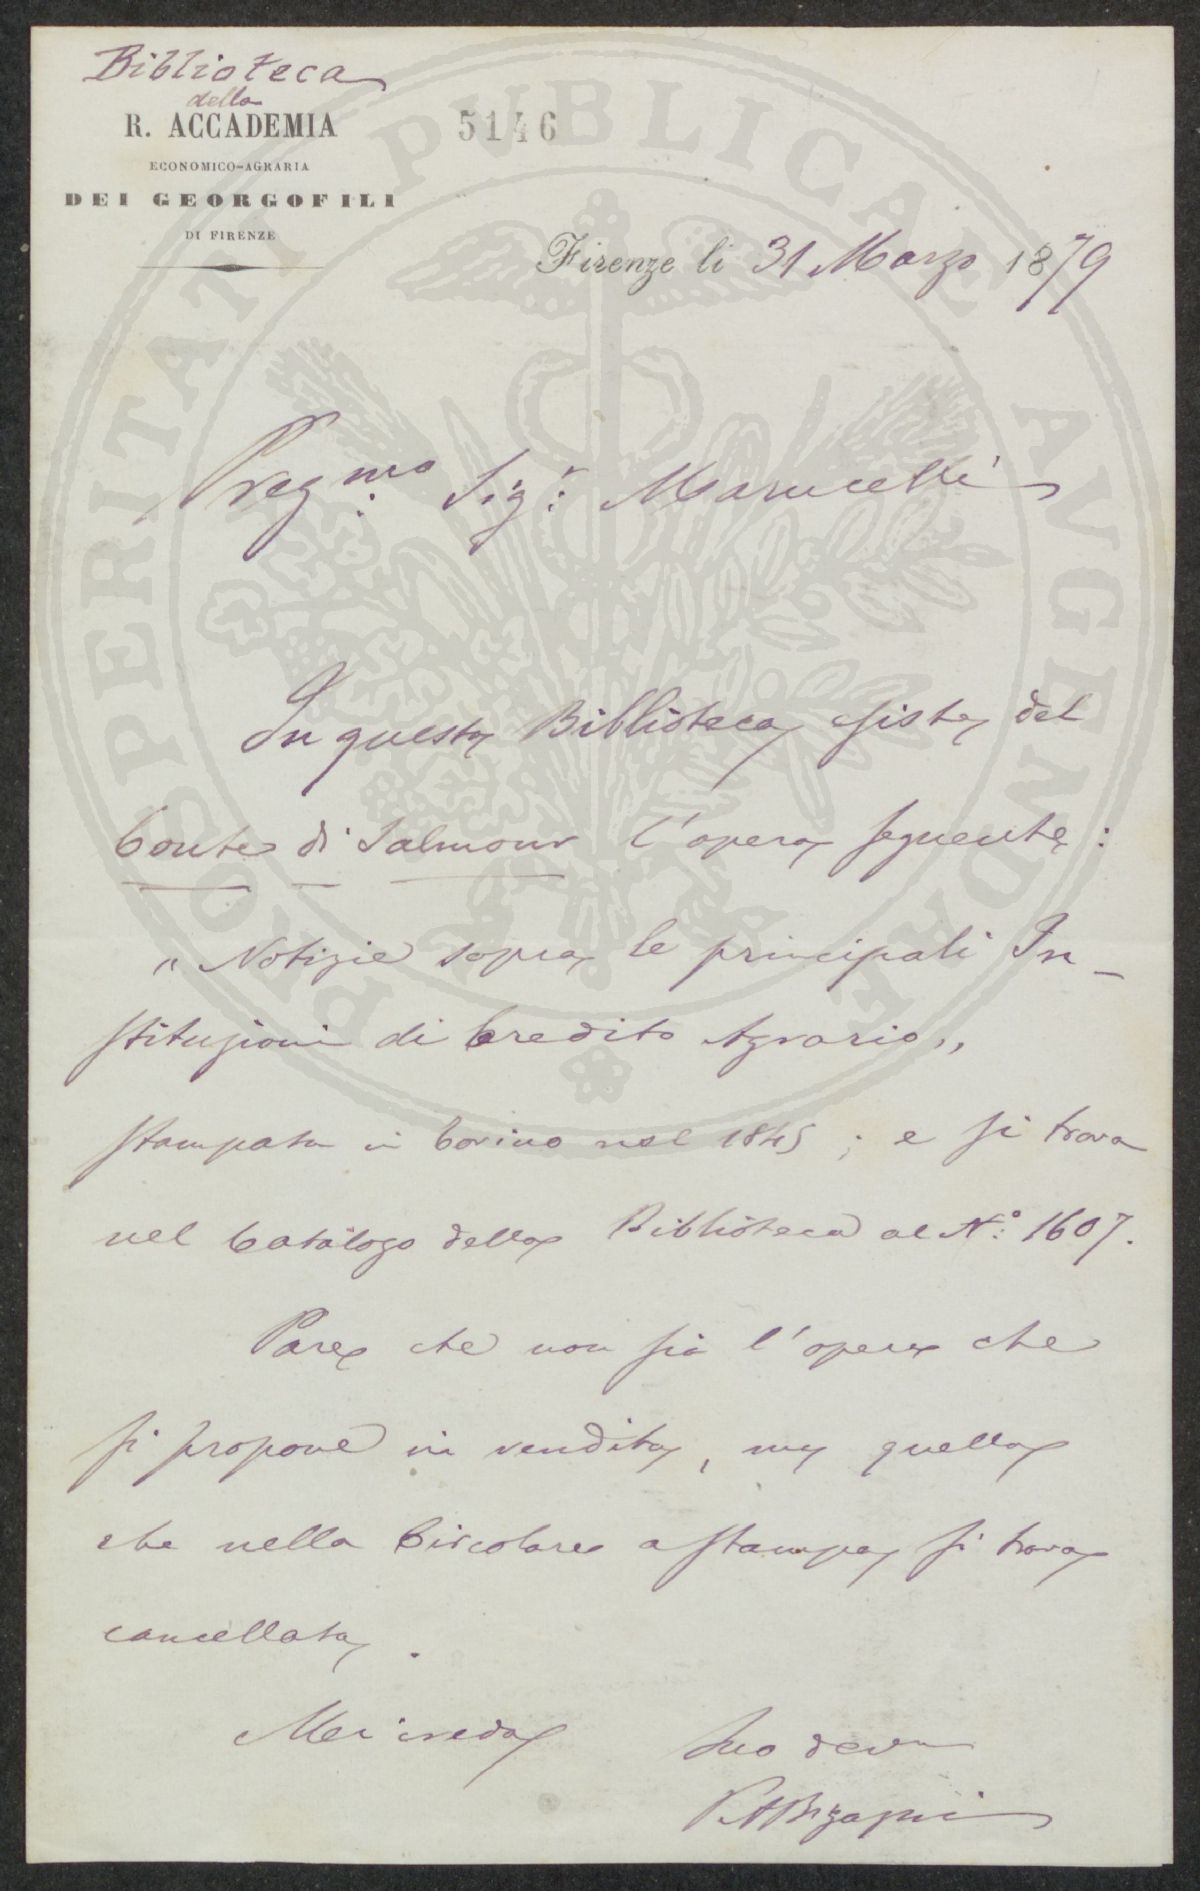 Biblioteca
della
R. ACCADEMIA
ECONOMICO-AGRARIA
DEI GEORGOFILI
DI FIRENZE
5146
Firenze li 31 Marzo 1879
Pregmo. Sigr: Marucelli
In questa Biblioteca esiste del
Conte di Salmour l'opera seguente:
"Notizie sopra le principali In-
stituzioni di Credito Agrario"
stampata in Torino nel 1845; e si trova
nel Catalogo della Biblioteca al N.° 1607.
Pare che non sia l'opera che
si propone in vendita, ma quella
che nella Circolare a stampa si trova
cancellata.
Mi creda
Suo dev
PROSPERITATI PVBLICAE AVGENDAE